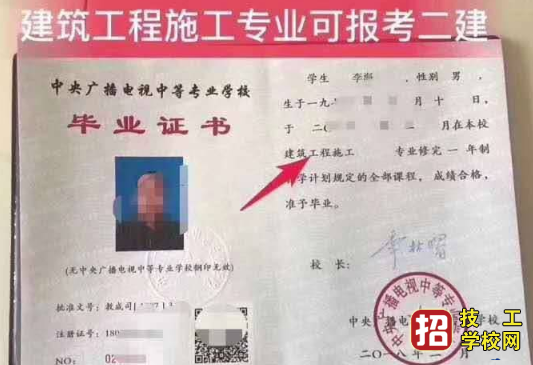 建筑工程施工专业可报考二建
中央广播电视中等专业学校
毕业证书
(无中央广播电视中等专业学校钢印无效)
批准文号:教成司
注册证号:180
NO: 02
学生 李 ,性别 男 ,
生于一九 月 十 日,
于 二〇 月在本校
建筑工程施工 专业修完 一 年制
学计划规定的全部课程,成绩合格,
准予毕业。
校 长:
中央广播电视 学校
二〇一八年 月 日
招 技工
学校网